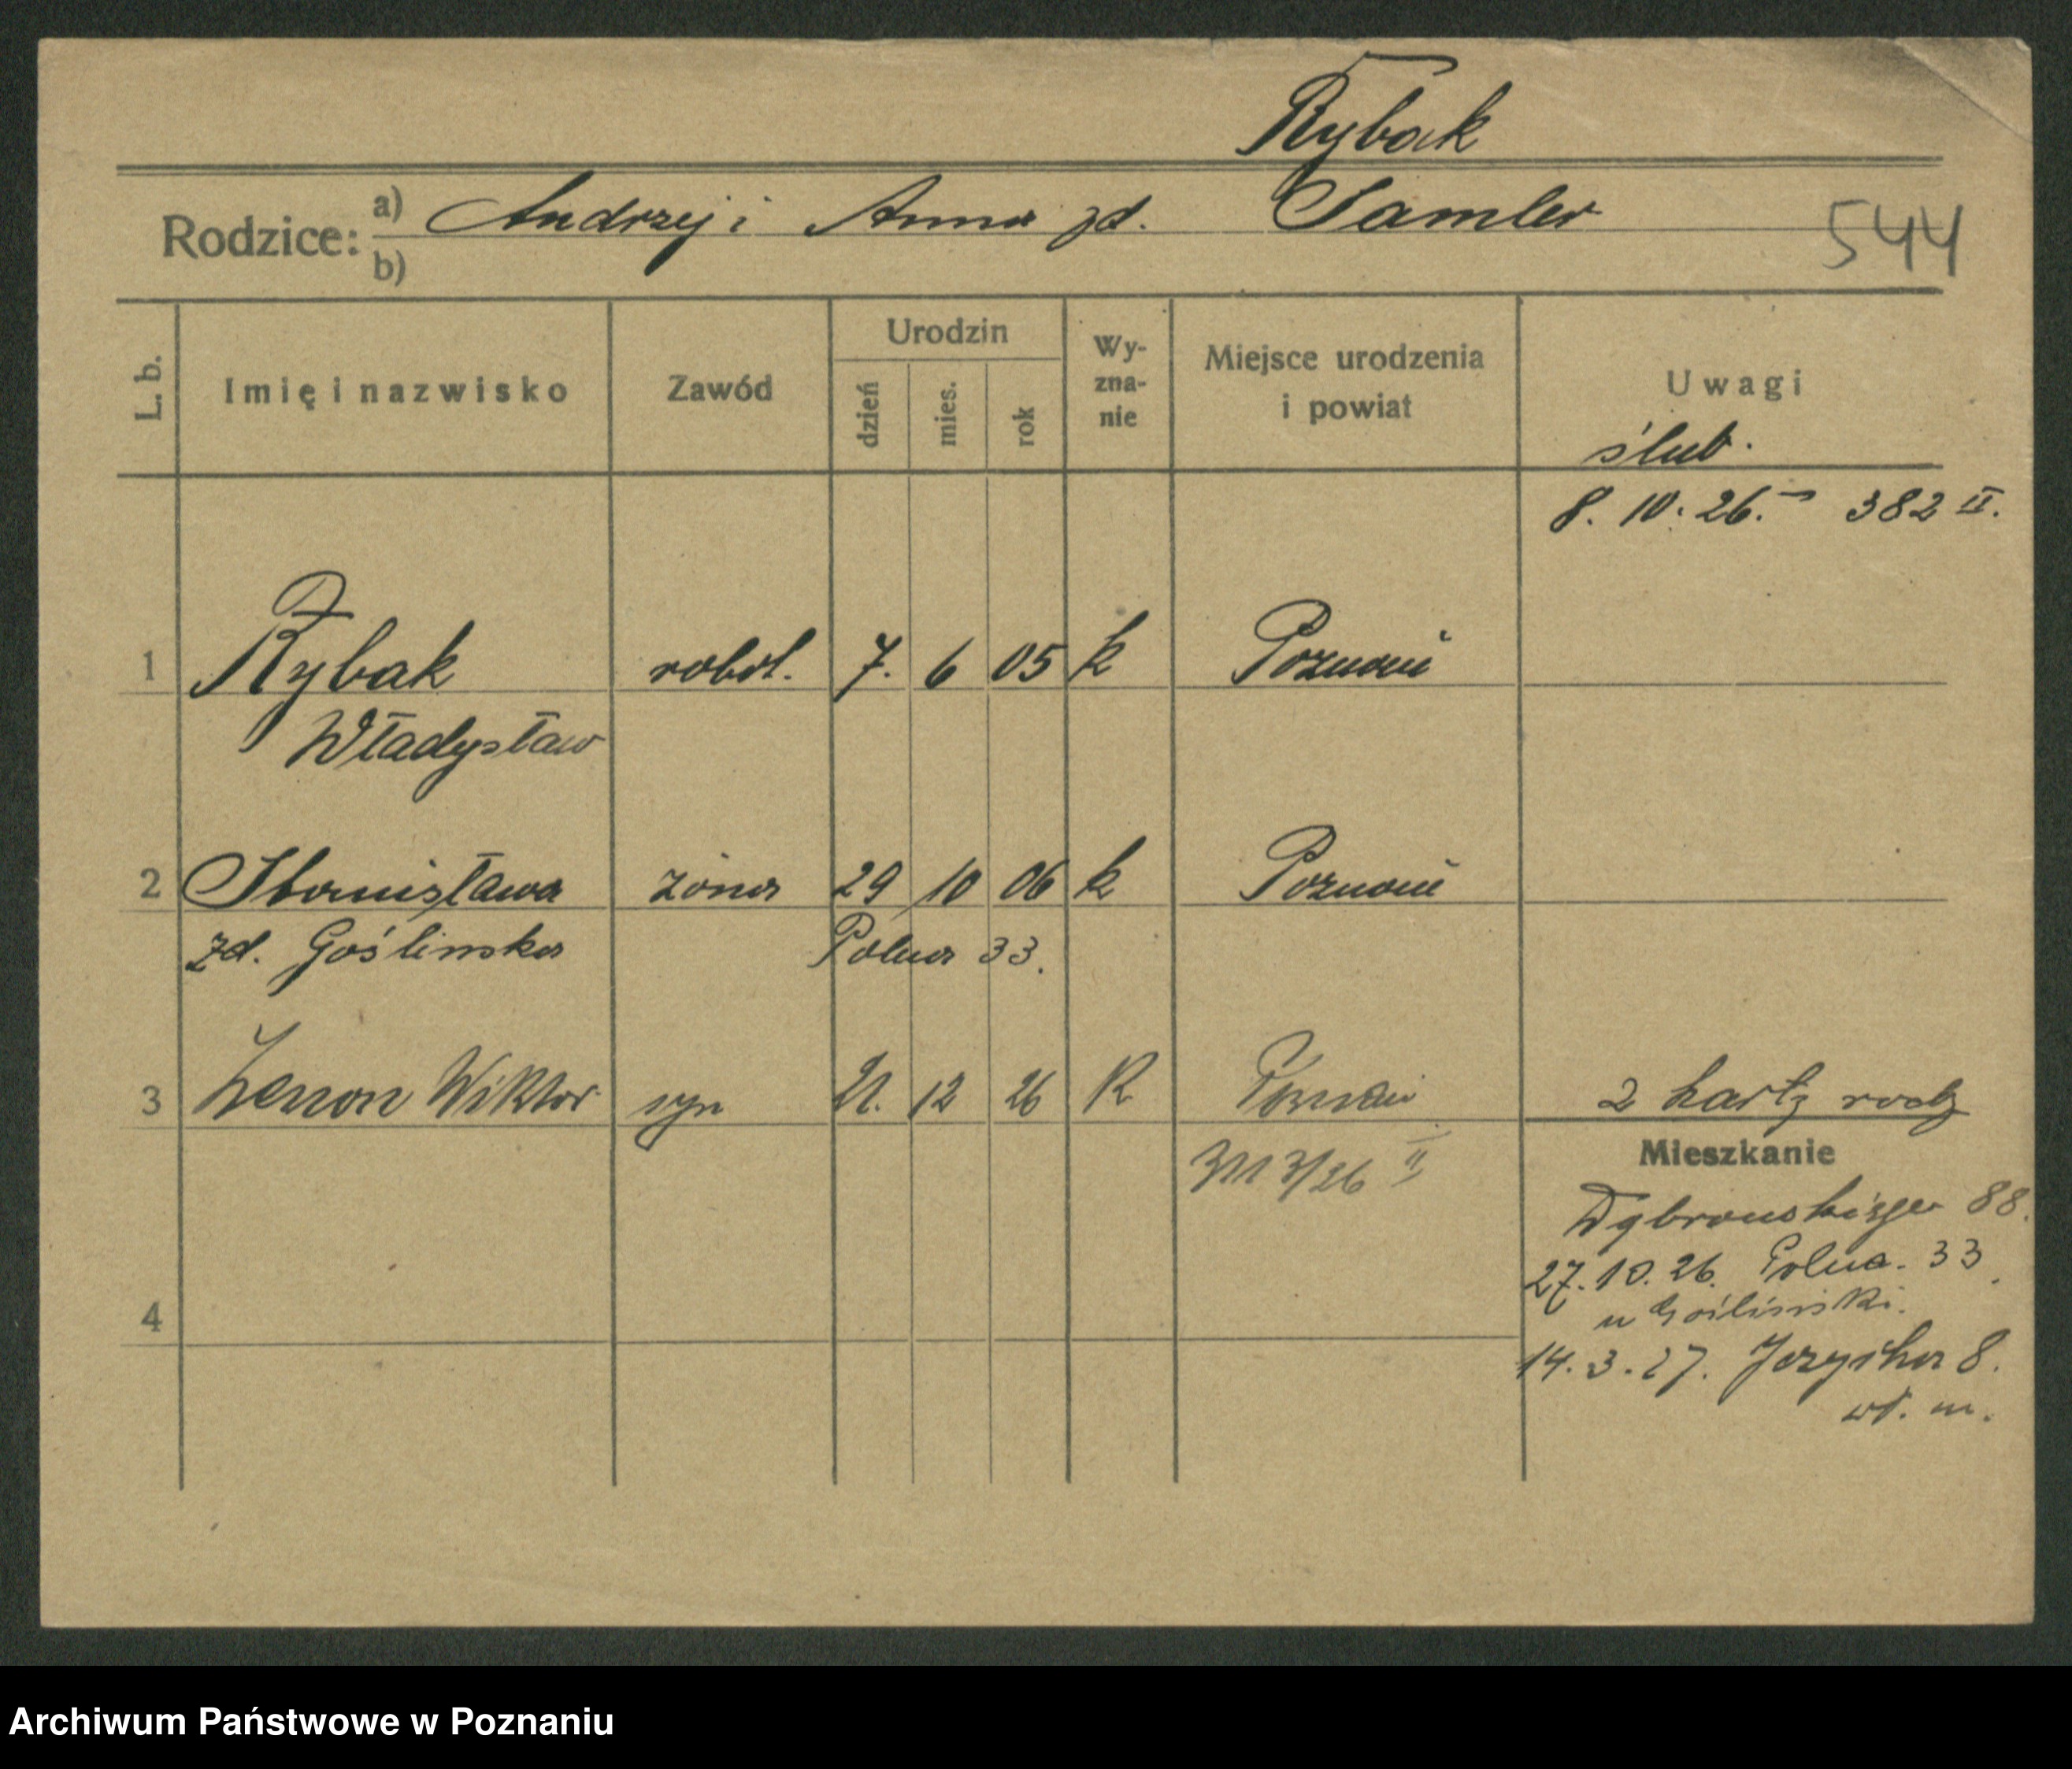 Rybak
Rodzice: a) Andrzej i Anna zd. Samler
b)
544
L. b. Imię i nazwisko Zawód Urodzin dzień mies. rok Wy-zna-nie Miejsce urodzenia i powiat Uwagi
ślub.
8. 10. 26. 382 II.
1 Rybak robot. 7. 6 05 k Poznań
Władysław
2 Stanisława żona 29 10 06 k Poznań
zd. Goślinska Polna 33.
3 Zenon Wiktor syn 21. 12 26 K Poznań 2 karty rodz
Mieszkanie
Dąbrowskiego 88.
27. 10. 26. Polna. 33
u Gośliński.
4
14. 3. 27. Jeżycka 8.
wł. m.
Archiwum Państwowe w Poznaniu